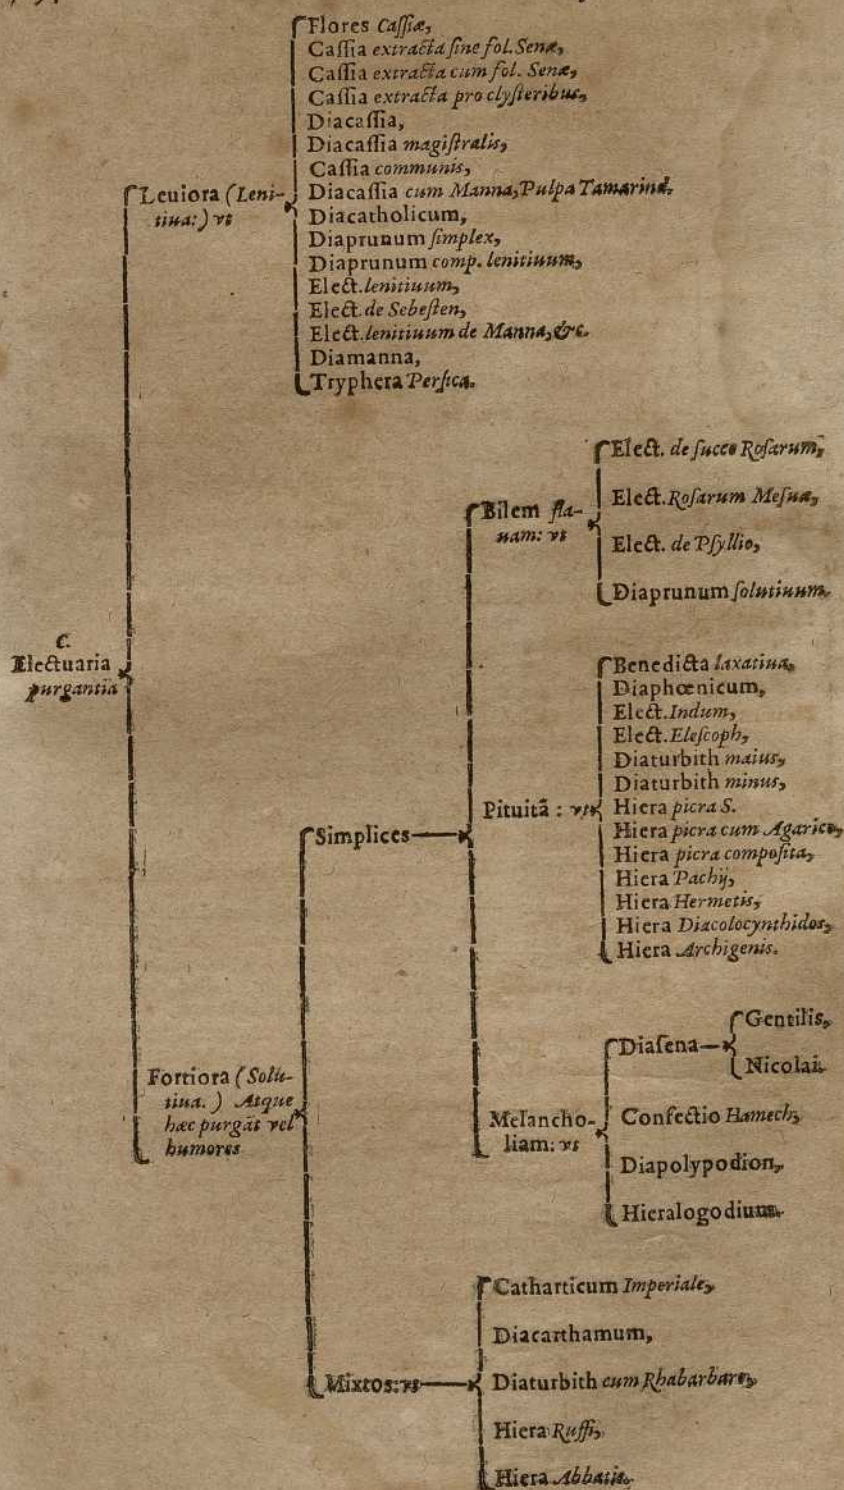 Flores Caſſiæ,
Caſſia extracta ſine fol. Senæ,
Caſſia extracta cum fol. Senæ,
Caſſia extracta pro clyſteribus,
Diacaſſia,
Diacaſſia magiſtralis,
Caſſia communis,
Leuiora (Leni-
tiua:) vt
Diacaſſia cum Manna, Pulpa Tamarind.
Diacatholicum,
Diaprunum ſimplex,
Diaprunum comp. lenitiuum,
Elect. lenitiuum,
Elect. de Sebeſten,
Elect. lenitiuum de Manna, &c.
Diamanna,
Tryphera Perſica.
C.
Electuaria
purgantia
Fortiora (Solu-
tiua.) Atque
hæc purgãt vel
humores
Simplices
Bilem fla-
uam: vt
Elect. de ſucco Roſarum,
Elect. Roſarum Meſuæ,
Elect. de Pſyllio,
Diaprunum ſolutiuum.
Pituitã : vt
Benedicta laxatiua,
Diaphœnicum,
Elect. Indum,
Elect. Eleſcoph,
Diaturbith maius,
Diaturbith minus,
Hiera picra S.
Hiera picra cum Agarico,
Hiera picra compoſita,
Hiera Pachij,
Hiera Hermetis,
Hiera Diacolocynthidos,
Hiera Archigenis.
Melancho-
liam: vt
Diaſena
Gentilis,
Nicolai.
Confectio Hamech,
Diapolypodion,
Hieralogodium.
Mixtos: vt
Catharticum Imperiale,
Diacarthamum,
Diaturbith cum Rhabarbaro,
Hiera Ruffi,
Hiera Abbatis.